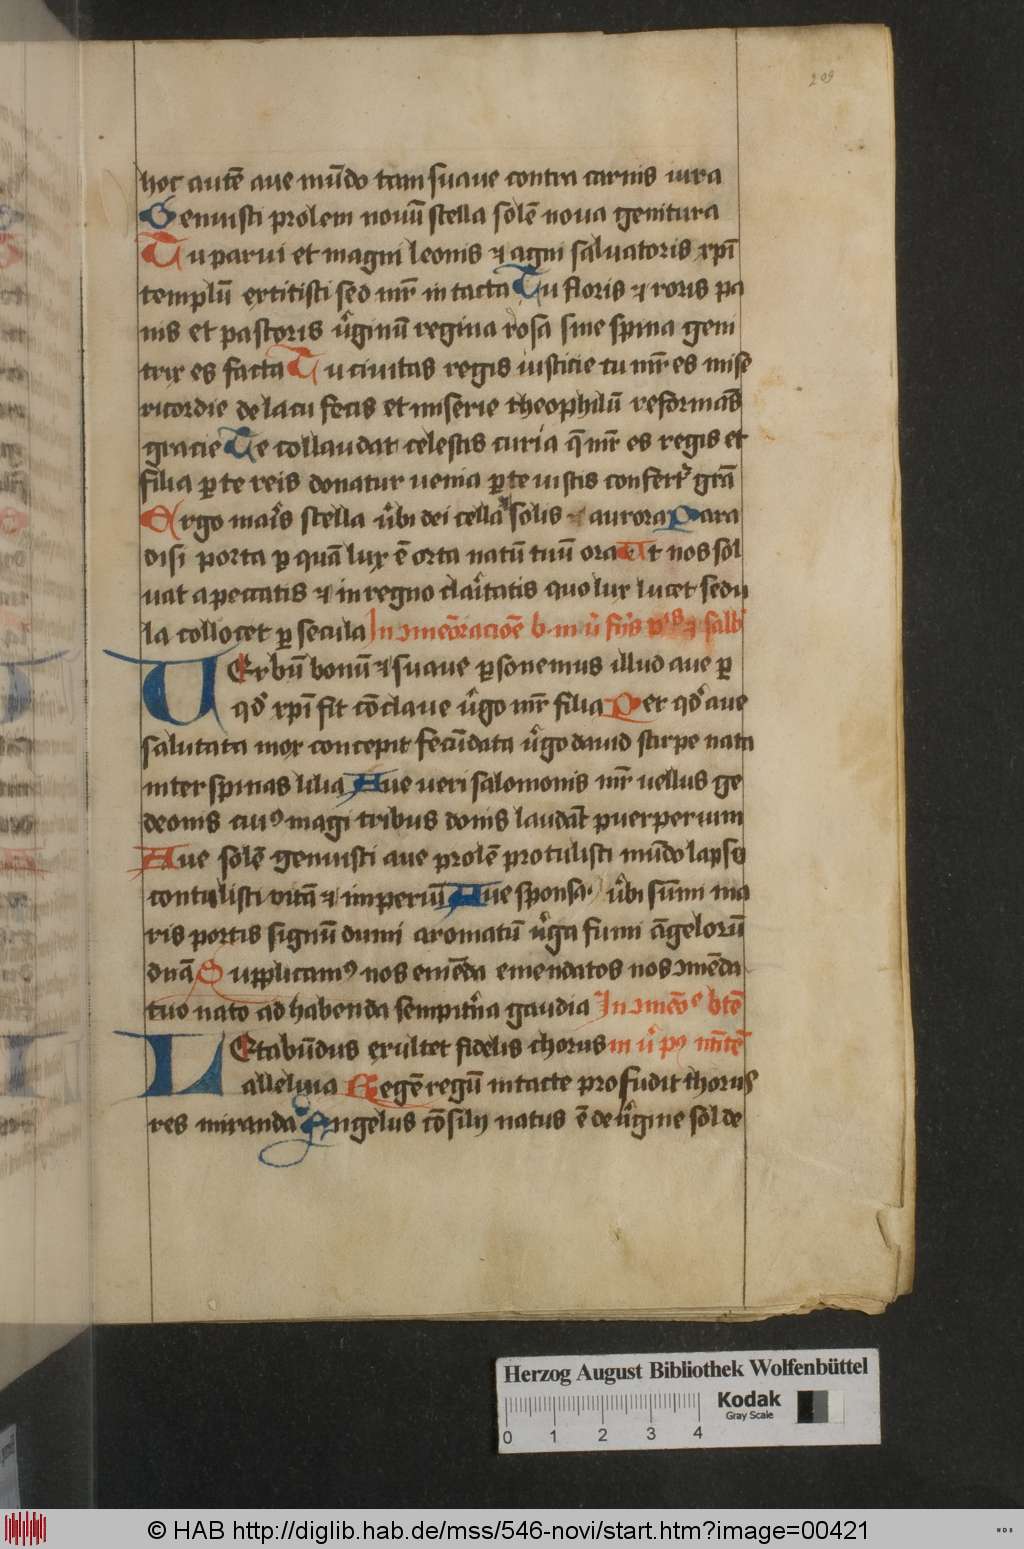 209
hoc autē aue mūdo tam suaue contra carnis iura
Genuisti prolem nouū stella solē noua genitura
Tu parui et magni leonis ⁊ agni saluatoris xpī
templū extitisti sed mr̄ intacta Tu floris ⁊ roris pa
nis et pastoris ūginū regina rosa sine spina geni
trix es facta Tu ciuitas regis iusticie tu mr̄ es mise
ricordie de lacu fecis et miserie theophilū reformās
gracie Te collaudat celestis curia q̄ mr̄ es regis et
filia ꝑ te reis donatur uenia ꝑ te iustis confert᷑ grā
Ergo maris stella ūbi dei cella solis ⁊ aurora Para
disi porta ꝑ quā lux ē orta natū tuū ora Ut nos sol
uat a peccatis ⁊ in regno claitatis quo lux lucet sedu
la collocet ꝑ secula In ɔmeōracioē b m ū
Uerbū bonū ⁊ suaue ꝑsonemus illud aue ꝑ
qd̓ xpī fit cōclaue ūgo mr̄ filia Per qd̓ aue
salutata mox concepit fecūdata ūgo dauid stirpe nata
inter spinas lilia Aue ueri salomonis mr̄ uellus ge
deonis cuiꝰ magi tribus donis laudāt puerperium
Aue solē genuisti aue prolē protulisti mūdo lapso
contulisti uitā ⁊ imperiū Aue sponsa ūbi sūmi ma
ris portis signū dumi aromatū ūga fumi āgelorū
dnā Supplicamꝰ nos emēda emendatos nos ɔmēda
tuo nato ad habenda sempitna gaudia In ɔmeōe btē
Letabūdus exultet fidelis chorus m ū pꝰ
alleluia Regē regū intacte profudit thorus
res miranda Angelus cōsilij natus ē de ūgine sol de
Herzog August Bibliothek Wolfenbüttel
Kodak
Gray Scale
0 1 2 3 4
© HAB http://diglib.hab.de/mss/546-novi/start.htm?image=00421